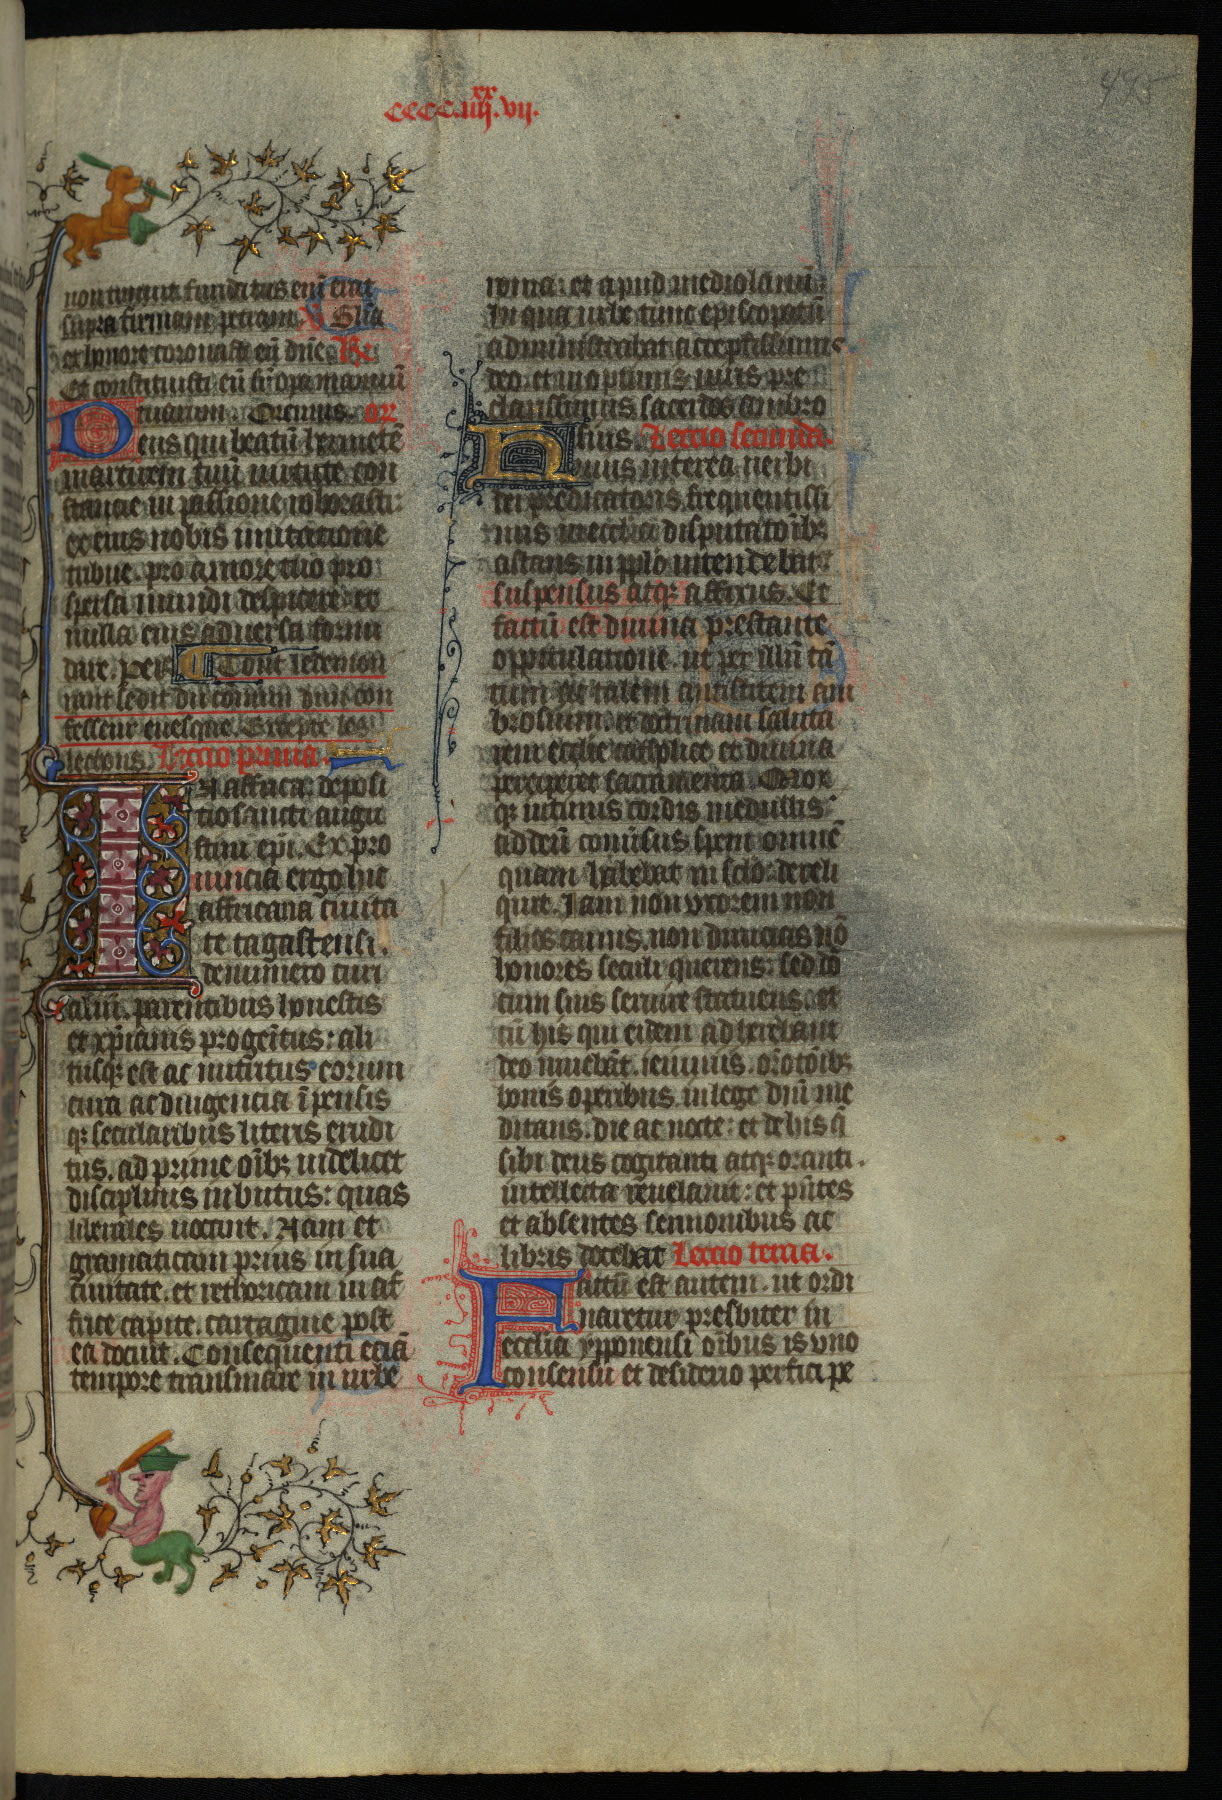 cccc.iiij.xx.vij.
445
non timuit fundatus eni erat
supra firmam petram. V Gl'ia
et honore coronasti eu dne. R.
Et constituisti eu sup opa manuu
tuarum. Oremus. or
Deus qui beatu hermete
martirem tuu uirtute con
stancie in passione roborasti:
ex eius nobis imitatione
tribue. pro amore tuo pro
spera mundi despicere. et
nulla eius aduersa formi
dare. Per. Tout le demon
nant le dit du comun dun con
fesseur euesque. Excepte les
lecons. Lectio prima.
In affrica: deposi
tio sancti augu
stini epi. Ex pro
uincia ergo hic
affricana ciuita
te tagastensi.
de numero curi
aliu. parentibus honestis
et xpianis progenitus: ali
tusq; est ac nutritus eorum
cura ac diligencia i pensis
q; secularibus literis erudi
tus. ad prime oib; uidelicet
disciplinis inbutus: quas
liberales uocant. Nam et
gramaticam prius in sua
ciuitate. et rethoricam in af
frice capite. cartagine post
ea docuit. Consequenti ecia
tempore transmare in urbe
roma: et apud mediolanu:
In qua urbe tunc episcopatu
administrabat acceptissimus
deo. et in optimis uiris pre
clarissimus sacerdos ambro
sius. Lectio secunda.
Huius interea uerbi
dei predicatoris frequentissi
mis in ecclia disputatoib;
astans in pplo intendebat:
suspensus atq; affixus. Et
factu est diuina prestante
oppitulatione. ut per illu ta
tum ac talem antistitem am
brosium. et doctrinam saluta
rem ecclie catholice et diuina
perciperet sacramenta. Mox
q; intimis cordis medullis:
ad deu conuersus spem omne
quam habebat in sclo: dereli
quit. Iam non uxorem non
filios carnis. non diuicias no
honores seculi querens: sed do
tum suis seruire statuens. et
cu his qui eidem adherebant
deo uiuebat. ieiuniis. oratoib;
bonis operibus. in lege dni me
ditans. die ac nocte: et de his q
sibi deus cogitanti atq; oranti.
intellecta reuelauit: et pntes
et absentes sermonibus ac
libris docebat Lectio tercia.
Factu est autem. ut ordi
naretur presbiter in
ecclia ypponensi oibus is uno
consensu et desiderio perfici pe